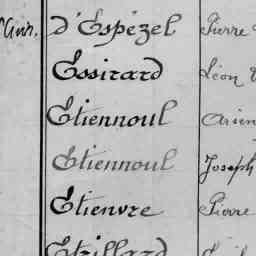 d'Espézel Pierre
Essirard Léon
Etiennoul
Etiennoul Joseph
Etienvre Pierre
Etrillard